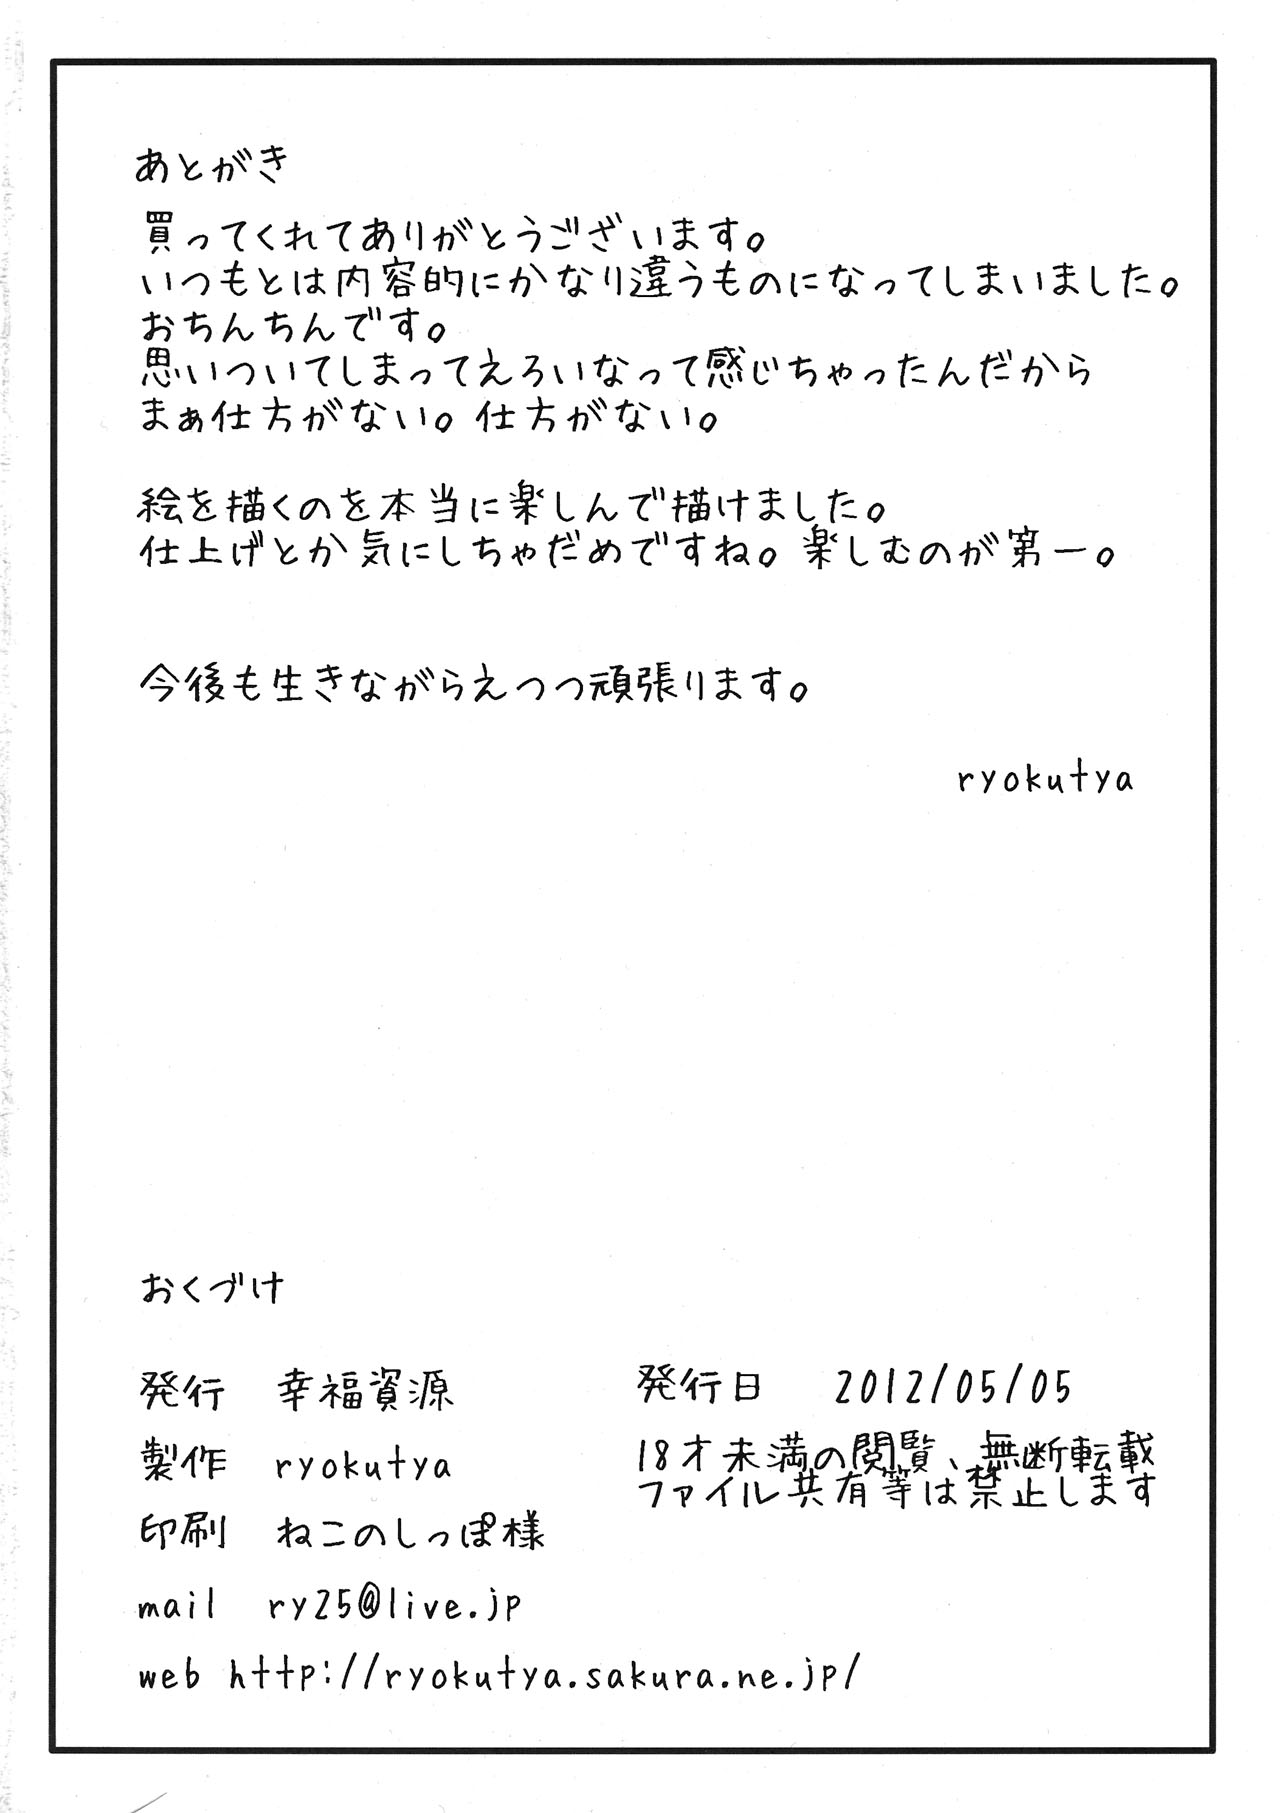 あとがき
買ってくれてありがとうございます。
いつもとは内容的にかなり違うものになってしまいました。
おちんちんです。
思いついてしまってえろいなって感じちゃったんだから
まぁ仕方がない。仕方がない。
絵を描くのを本当に楽しんで描けました。
仕上げとか気にしちゃだめですね。楽しむのが第一。
今後も生きながらえつつ頑張ります。
ryokutya
おくづけ
発行　幸福資源
製作　ryokutya
印刷　ねこのしっぽ様
mail　ry25@live.jp
web http://ryokutya.sakura.ne.jp/
発行日　2012/05/05
18才未満の閲覧、無断転載
ファイル共有等は禁止します